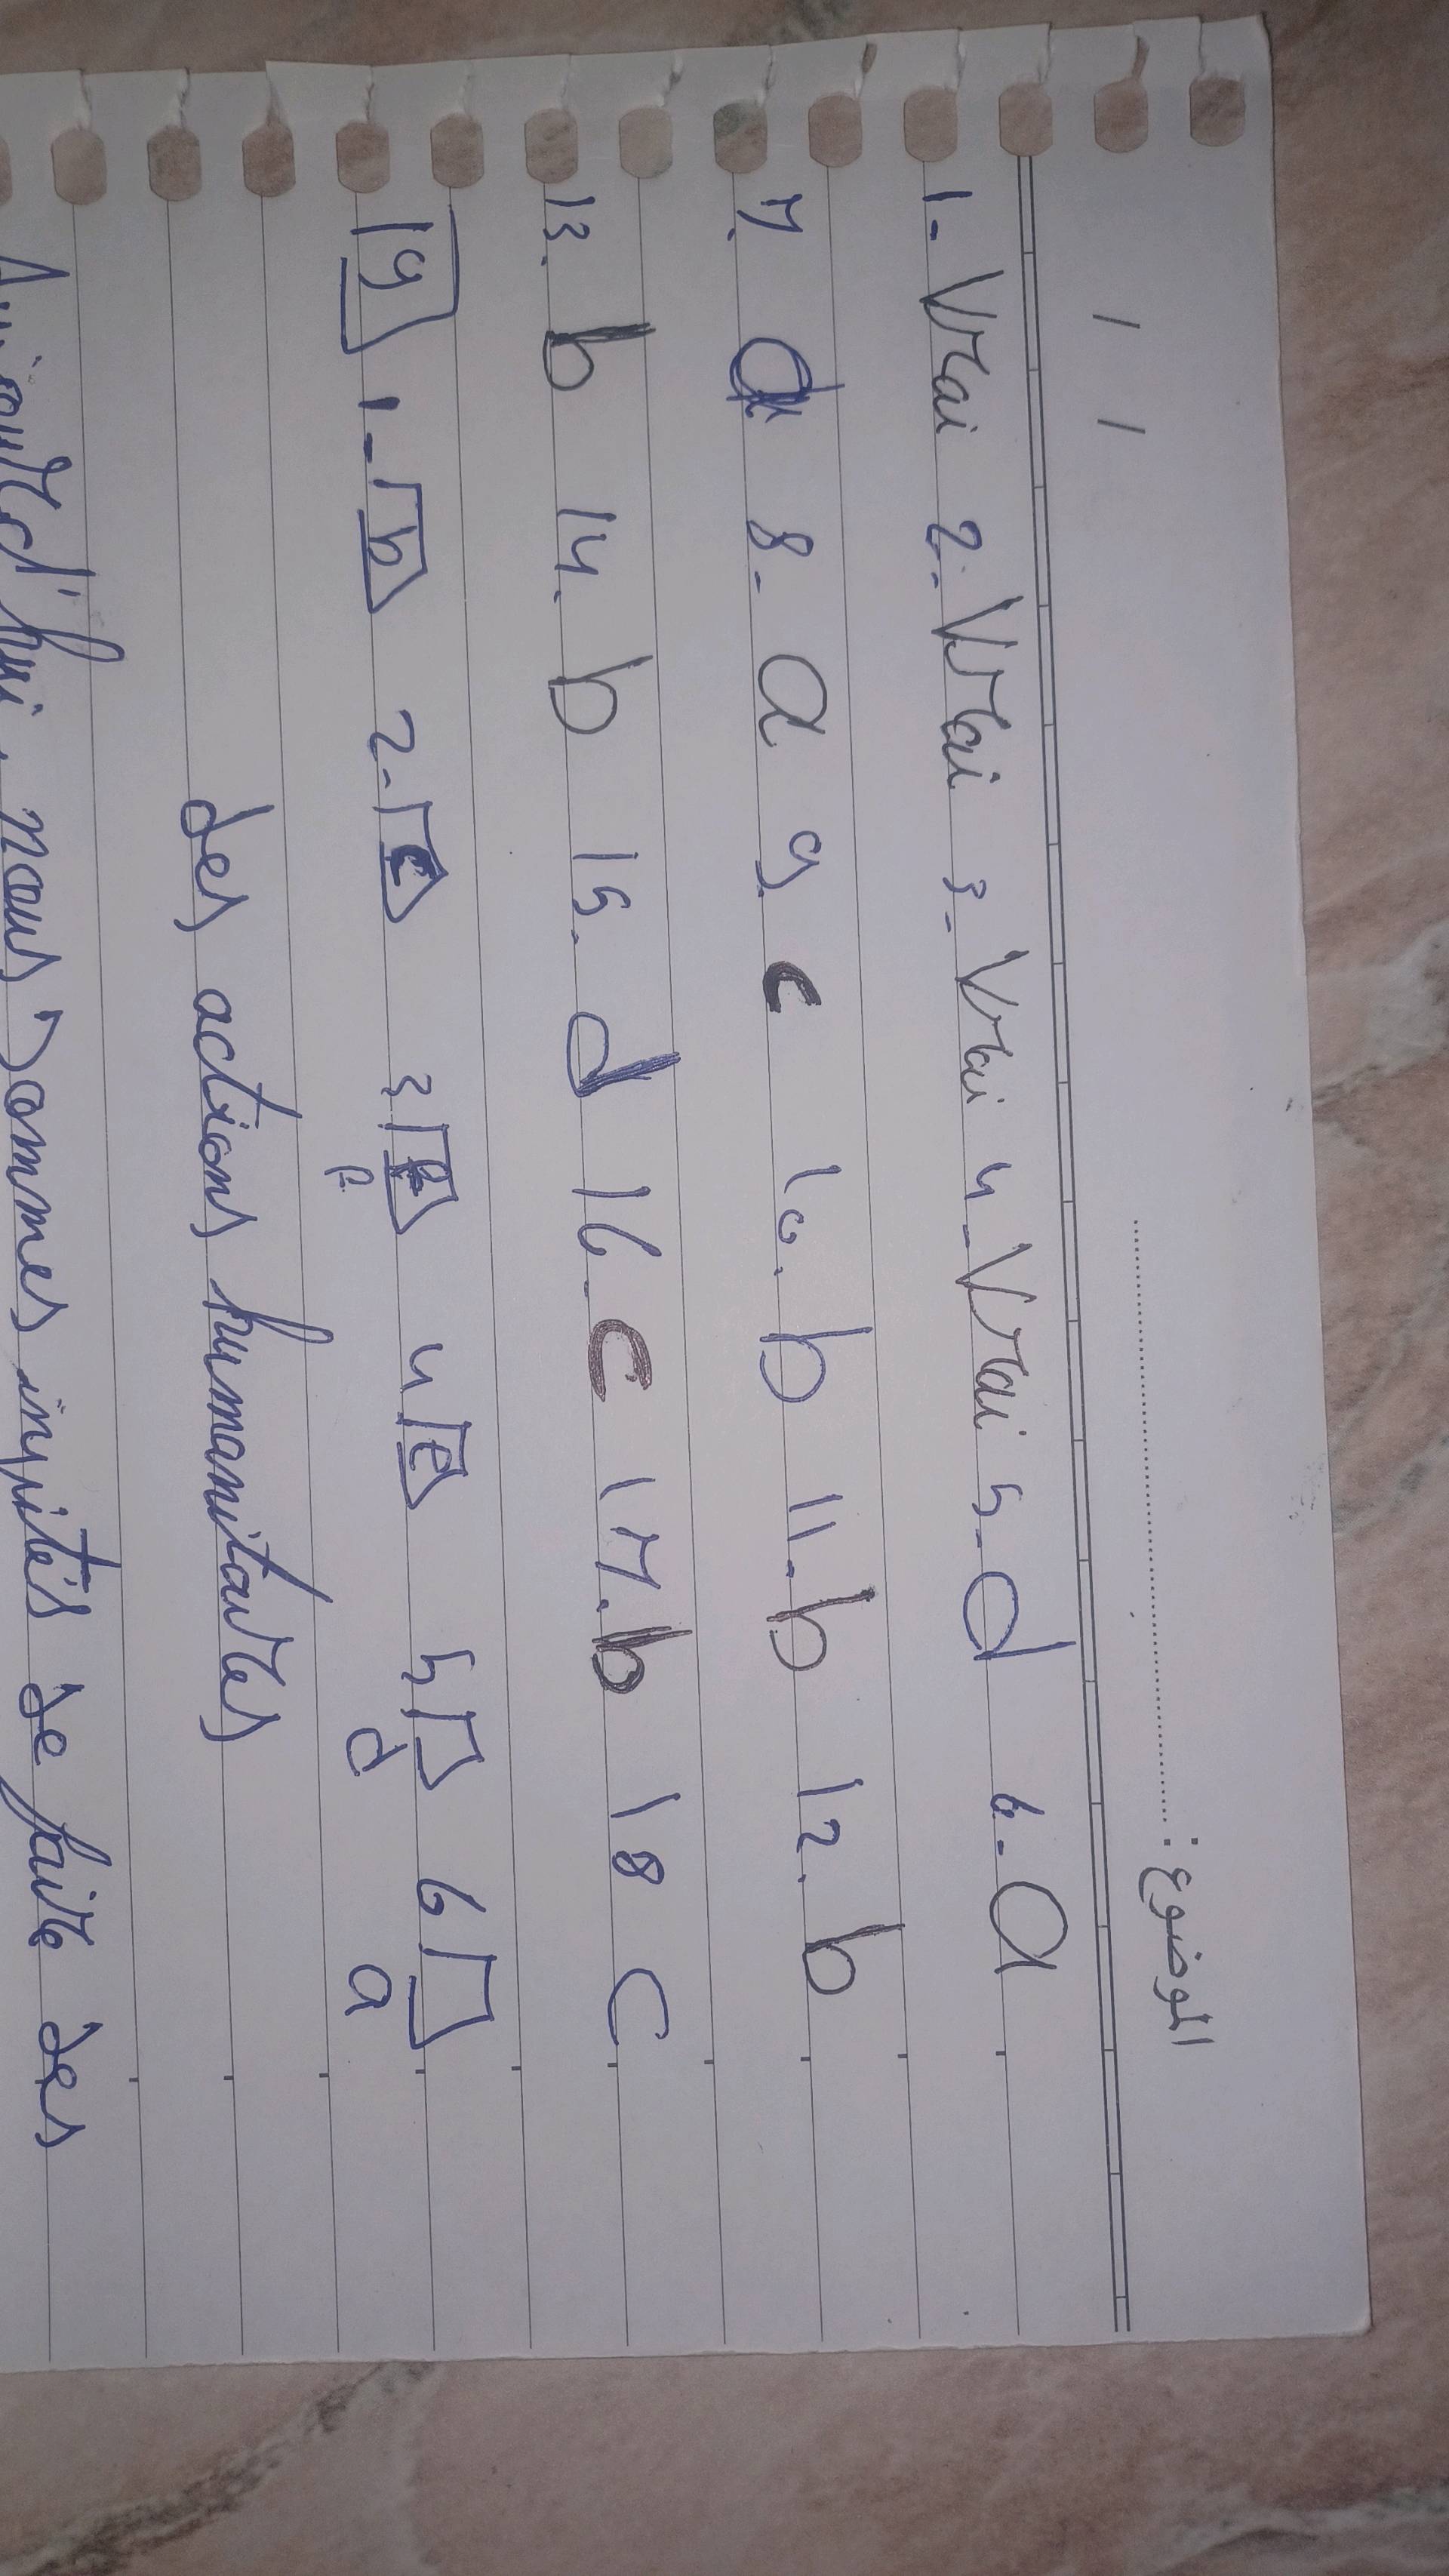 / / الموضوع :
1- Vrai 2- Vrai 3- Vrai 4- Vrai 5- d 6- a
7. d 8- a 9. c 10. b 11- b 12. b
13. b 14. b 15. d 16- c 17. b 18 c
19 1- b 2- c 3 f 4 e 5 d 6 a
des actions humanitaires
Aujourd'hui, nous sommes invités de faire des